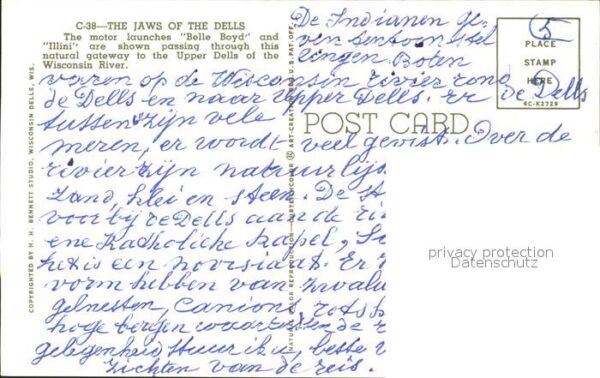 C-38—THE JAWS OF THE DELLS
The motor launches "Belle Boyd" and
"Illini" are shown passing through this
natural gateway to the Upper Dells of the
Wisconsin River.
De Indianen ge-
ven tentoonstel
lingen. Boten
varen op de Wisconsin rivier rond
de Dells en naar Upper Dells. Er
de Dells
tussen zijn vele
meren, er wordt veel gevist. Over de
rivier zijn natuurlijs
zand, klei en steen. De St
voorbij de Dells aan de ri
ene Katholieke Kapel, S
het is een noviciaat. Er z
vorm hebben van zwalu
gelnesten, canions rots
hoge bergen waartussen de r
gelegenheid stuur ik u, beste
zichten van de reis.
5
PLACE
STAMP
HERE
6C-K2729
POST CARD
COPYRIGHTED BY H. H. BENNETT STUDIO, WISCONSIN DELLS, WIS.
NATURAL COLOR REPRODUCTION—CURTEICHCOLOR ® ART-CREATION REG. U. S. PAT. OFF.
privacy protection
Datenschutz